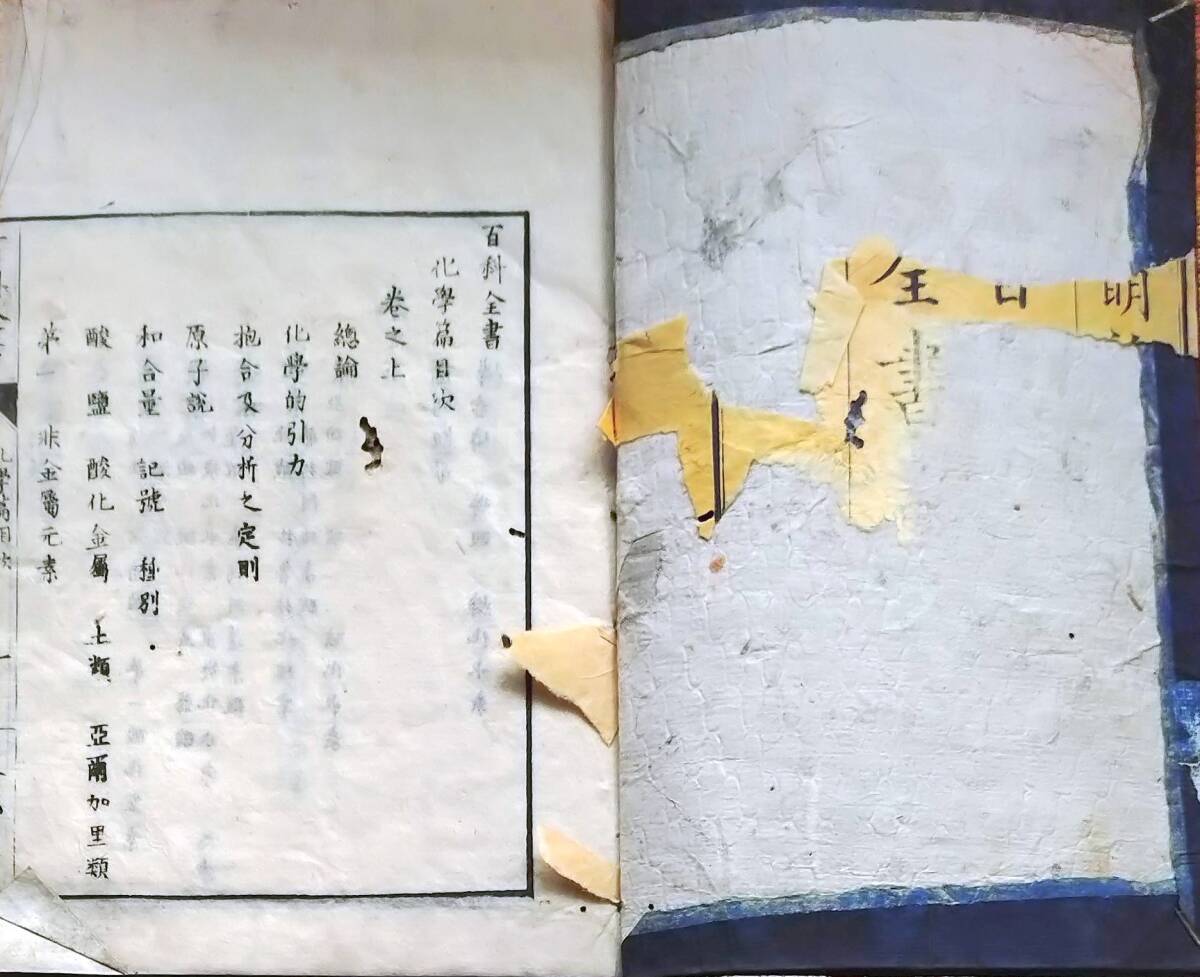 明
全
書
百科全書
化學篇目次
卷之上
總論
化學的引力
抱合及分折之定則
原子說
和合量 記號 種別
酸 鹽 酸化金屬 土類 亞爾加里類
第一 非金屬元素